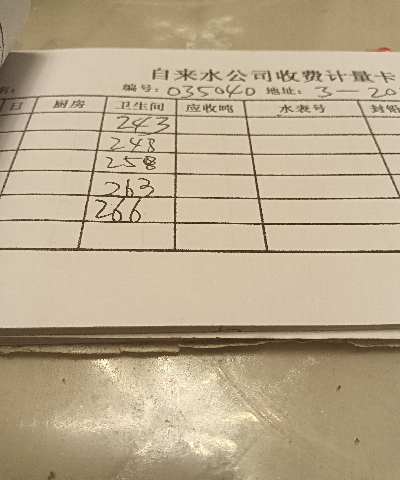 自来水公司收费计量卡
编号:035040 地址:3-20
日 厨房 卫生间 应收吨 水表号 封铅
243
248
258
263
266